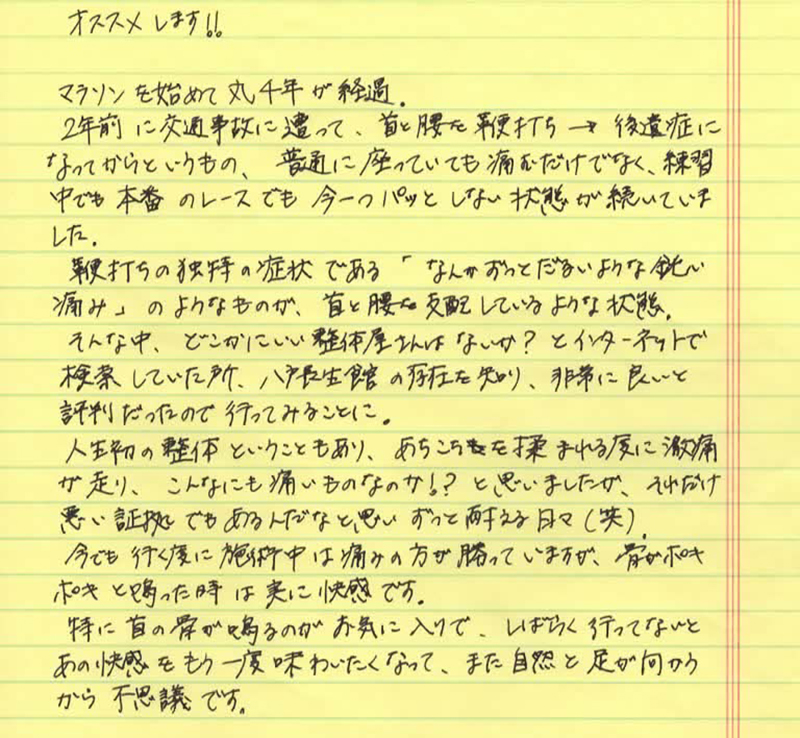 オススメします!!
マラソンを始めて丸千年が経過。
2年前に交通事故に遭って、首と腰を鞭打ち→後遺症に
なってからというもの、普通に座っていても痛むだけでなく、練習
中でも本番のレースでも今一つパッとしない状態が続いていま
した。
鞭打ちの独特の症状である「なんかずっとだるいような鈍い
痛み」のようなものが、首と腰を支配しているような状態。
そんな中、どこかにいい整体屋さんはないか?とインターネットで
検索していた所、八戸長生館の存在を知り、非常に良いと
評判だったので行ってみることに。
人生初の整体ということもあり、あちこちを揉まれる度に激痛
が走り、こんなにも痛いものなのか!?と思いましたが、それだけ
悪い証拠でもあるんだなと思いずっと耐える日々(笑)。
今でも行く度に施術中は痛みの方が勝っていますが、骨がポキ
ポキと鳴った時は実に快感です。
特に首の骨が鳴るのがお気に入りで、しばらく行ってないと
あの快感をもう一度味わいたくなって、また自然と足が向かう
から不思議です。